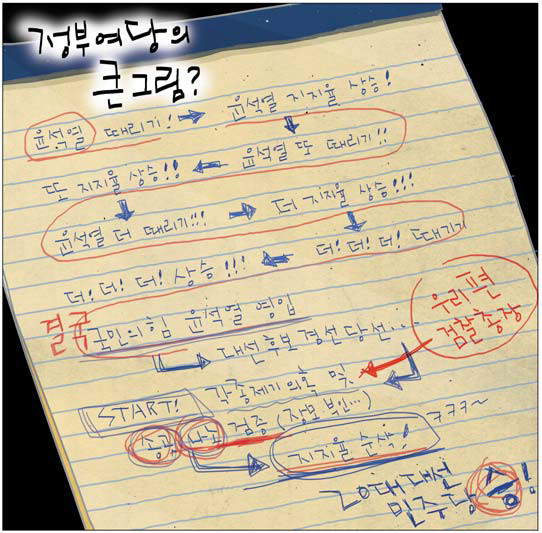 정부여당의
큰그림?
윤석열 때리기! → 윤석열 지지율 상승!
또 지지율 상승!! ← 윤석열 또 때리기!!
윤석열 더 때리기!!! → 더 지지율 상승!!!
더! 더! 더! 상승!!! ← 더! 더! 더! 때기기
결국 국민의힘 윤석열 영입
대선후보 경선당선...
우리편
검찰총장
START! 각종제기의혹 및
송곳 검증 (장모 부인...)
지지율 순삭! ㅋㅋㅋ~
20대대선
민주당 승!